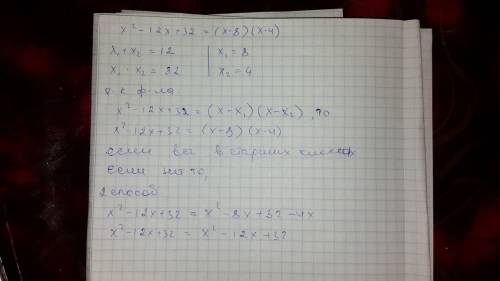 x² - 12x + 32 = (x-8)(x-4)
x₁ + x₂ = 12 | x₁ = 8
x₁ · x₂ = 32 | x₂ = 4
т.к ф-ла
x² - 12x + 32 = (x-x₁)(x-x₂), то
x² - 12x + 32 = (x-8)(x-4)
если вы в старших классах
если нет то,
2 способ
x² - 12x + 32 = x² - 8x + 32 - 4x
x² - 12x + 32 = x² - 12x + 32